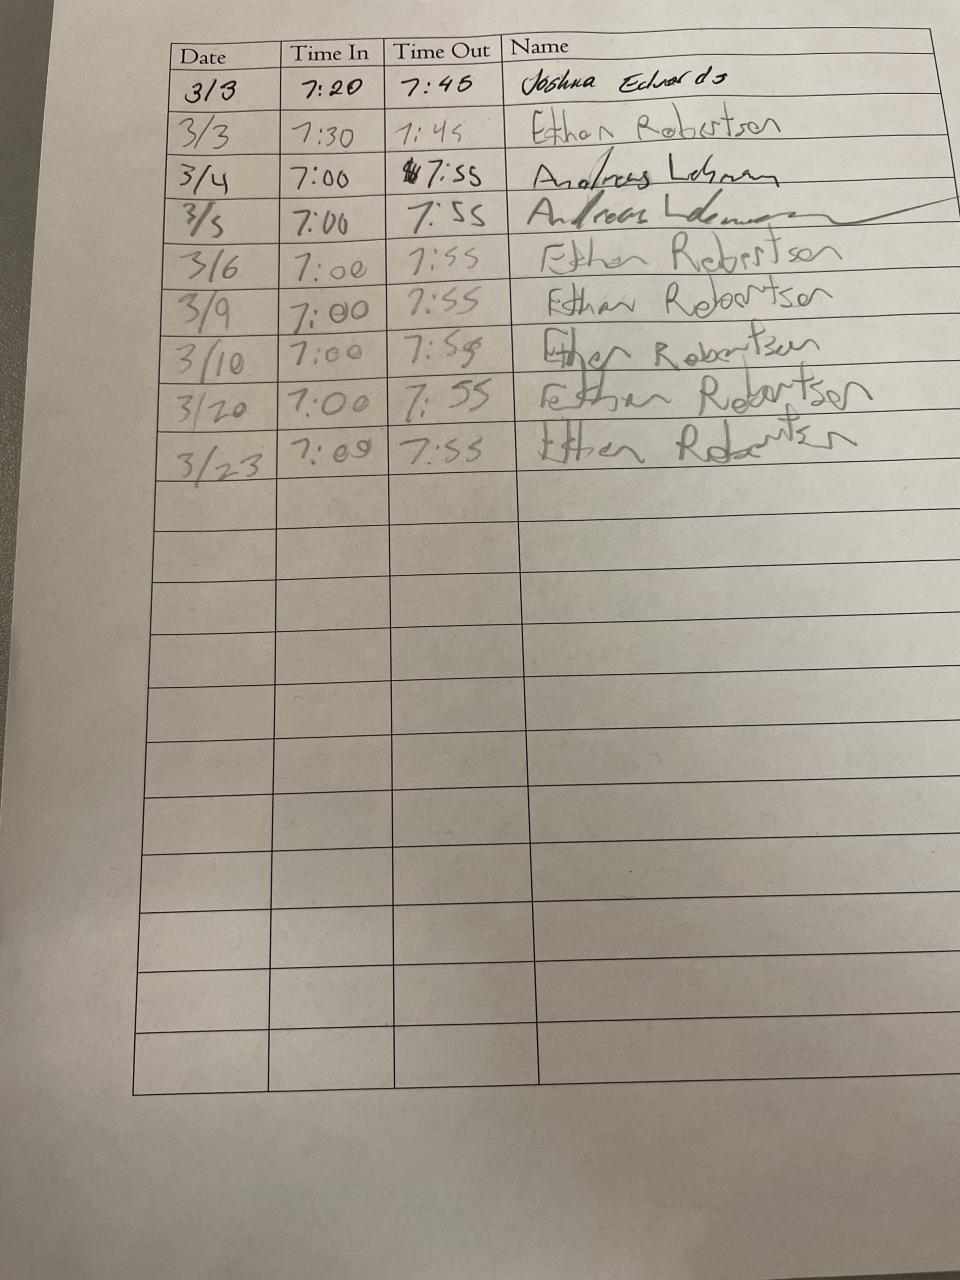 Date Time In Time Out Name
3/3 7:20 7:45 Joshua Edwards
3/3 7:30 7:45 Ethan Robertson
3/4 7:00 7:55 Andreas Lehman
3/5 7:00 7:55 Andreas
3/6 7:00 7:55 Ethan Robertson
3/9 7:00 7:55 Ethan Robertson
3/10 7:00 7:55 Ethan Robertson
3/20 7:00 7:55 Ethan Robertson
3/23 7:00 7:55 Ethan Robertson